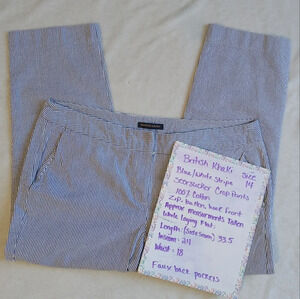 British Khaki Size 14
Blue/White stripe
Seersucker Crop Pants
100% Cotton
Zip, button, hook front
Approx Measurements Taken
While Laying Flat.
Length (Sideseam) 33.5
Inseam - 24
Waist - 18
Faux back pockets